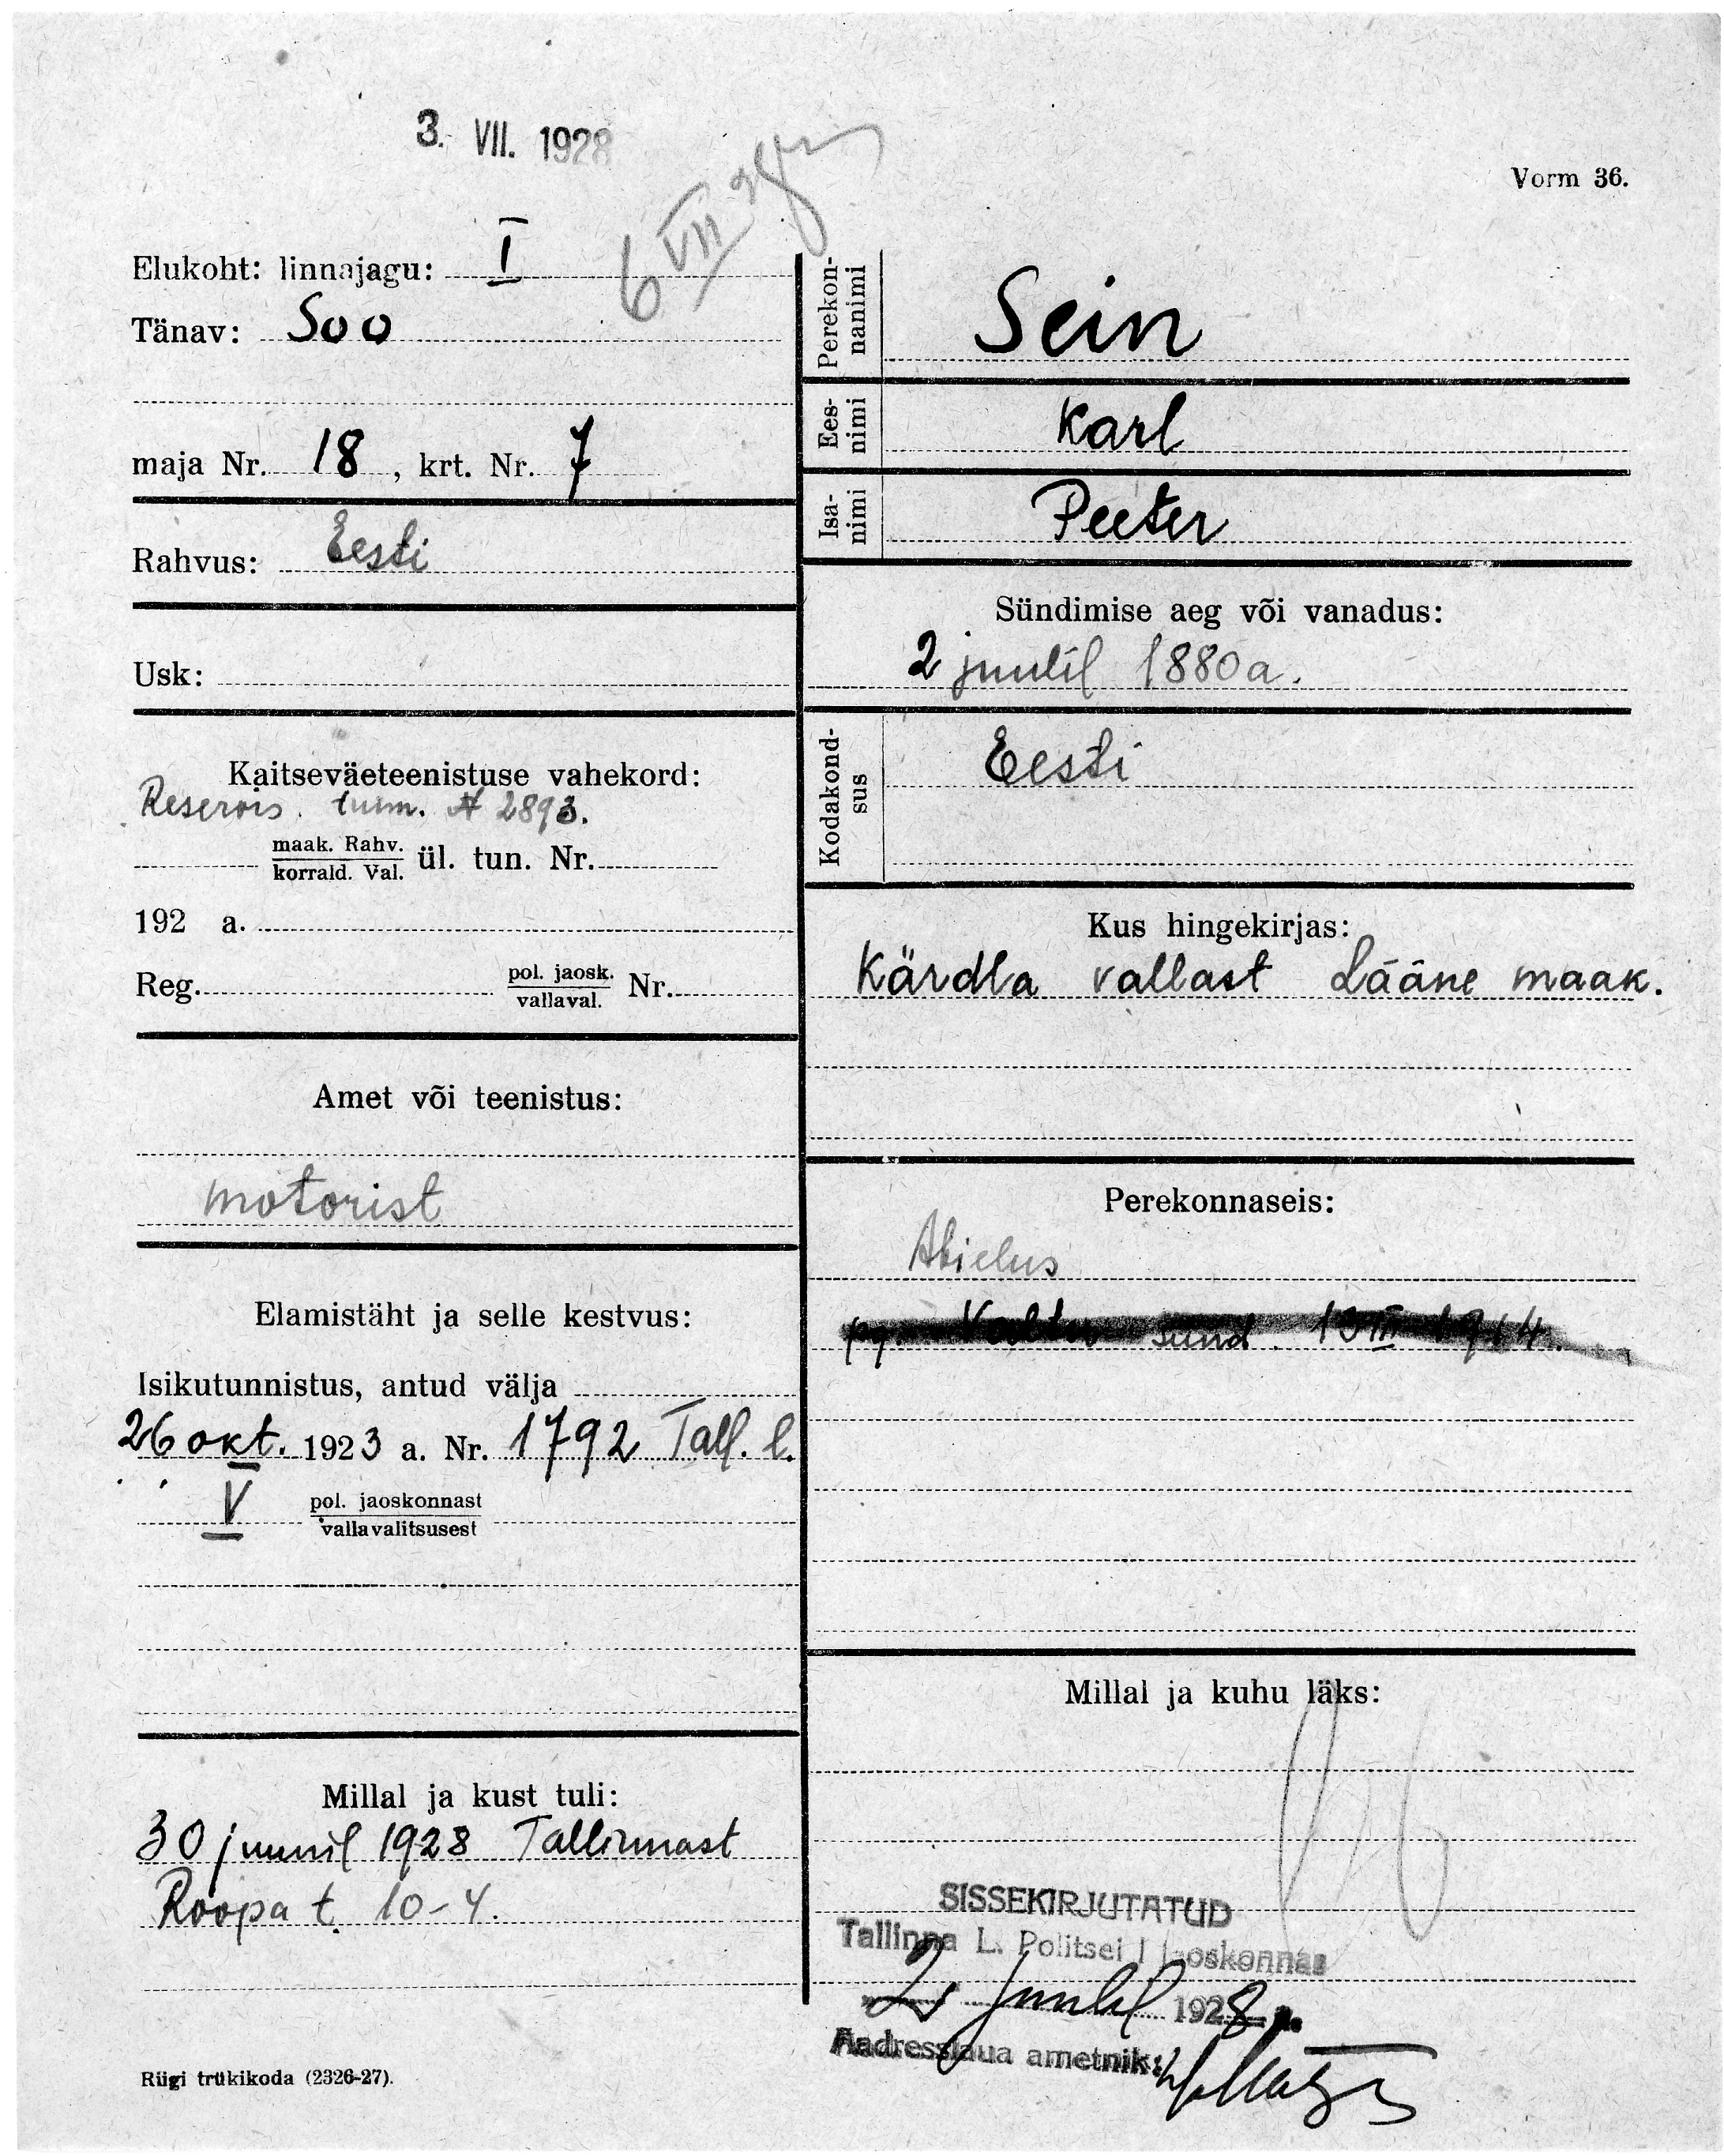 3. VII. 1928
6 VII 28
Vorm 36.
Elukoht: linnajagu: I
Tänav: Soo
maja Nr. 18, krt. Nr. 7
Rahvus: Eesti
Usk:
Kaitseväeteenistuse vahekord:
Reservis. tunn. № 2893.
maak. Rahv.
korrald. Val.
ül. tun. Nr.
192 a.
Reg. pol. jaosk. Nr.
vallaval.
Amet või teenistus:
motorist
Elamistäht ja selle kestvus:
Isikutunnistus, antud välja
26 okt. 1923 a. Nr. 1792 Tall. l.
V pol. jaoskonnast
vallavalitsusest
Millal ja kust tuli:
30 juunil 1928 Tallinnast
Roopa t. 10-4.
Riigi trükikoda (2326-27).
Perekon-
nanimi
Sein
Ees-
nimi
Karl
Isa-
nimi
Peeter
Sündimise aeg või vanadus:
2 juulil 1880 a.
Kodakond-
sus
Eesti
Kus hingekirjas:
Kärdla vallast Lääne maak.
Perekonnaseis:
Abielus
pg. sünd. 13 1914.
Millal ja kuhu läks:
SISSEKIRJUTATUD
Tallinna L. Politsei I jaoskonnas
"2" juulil 1928 a.
Aadresslaua ametnik: